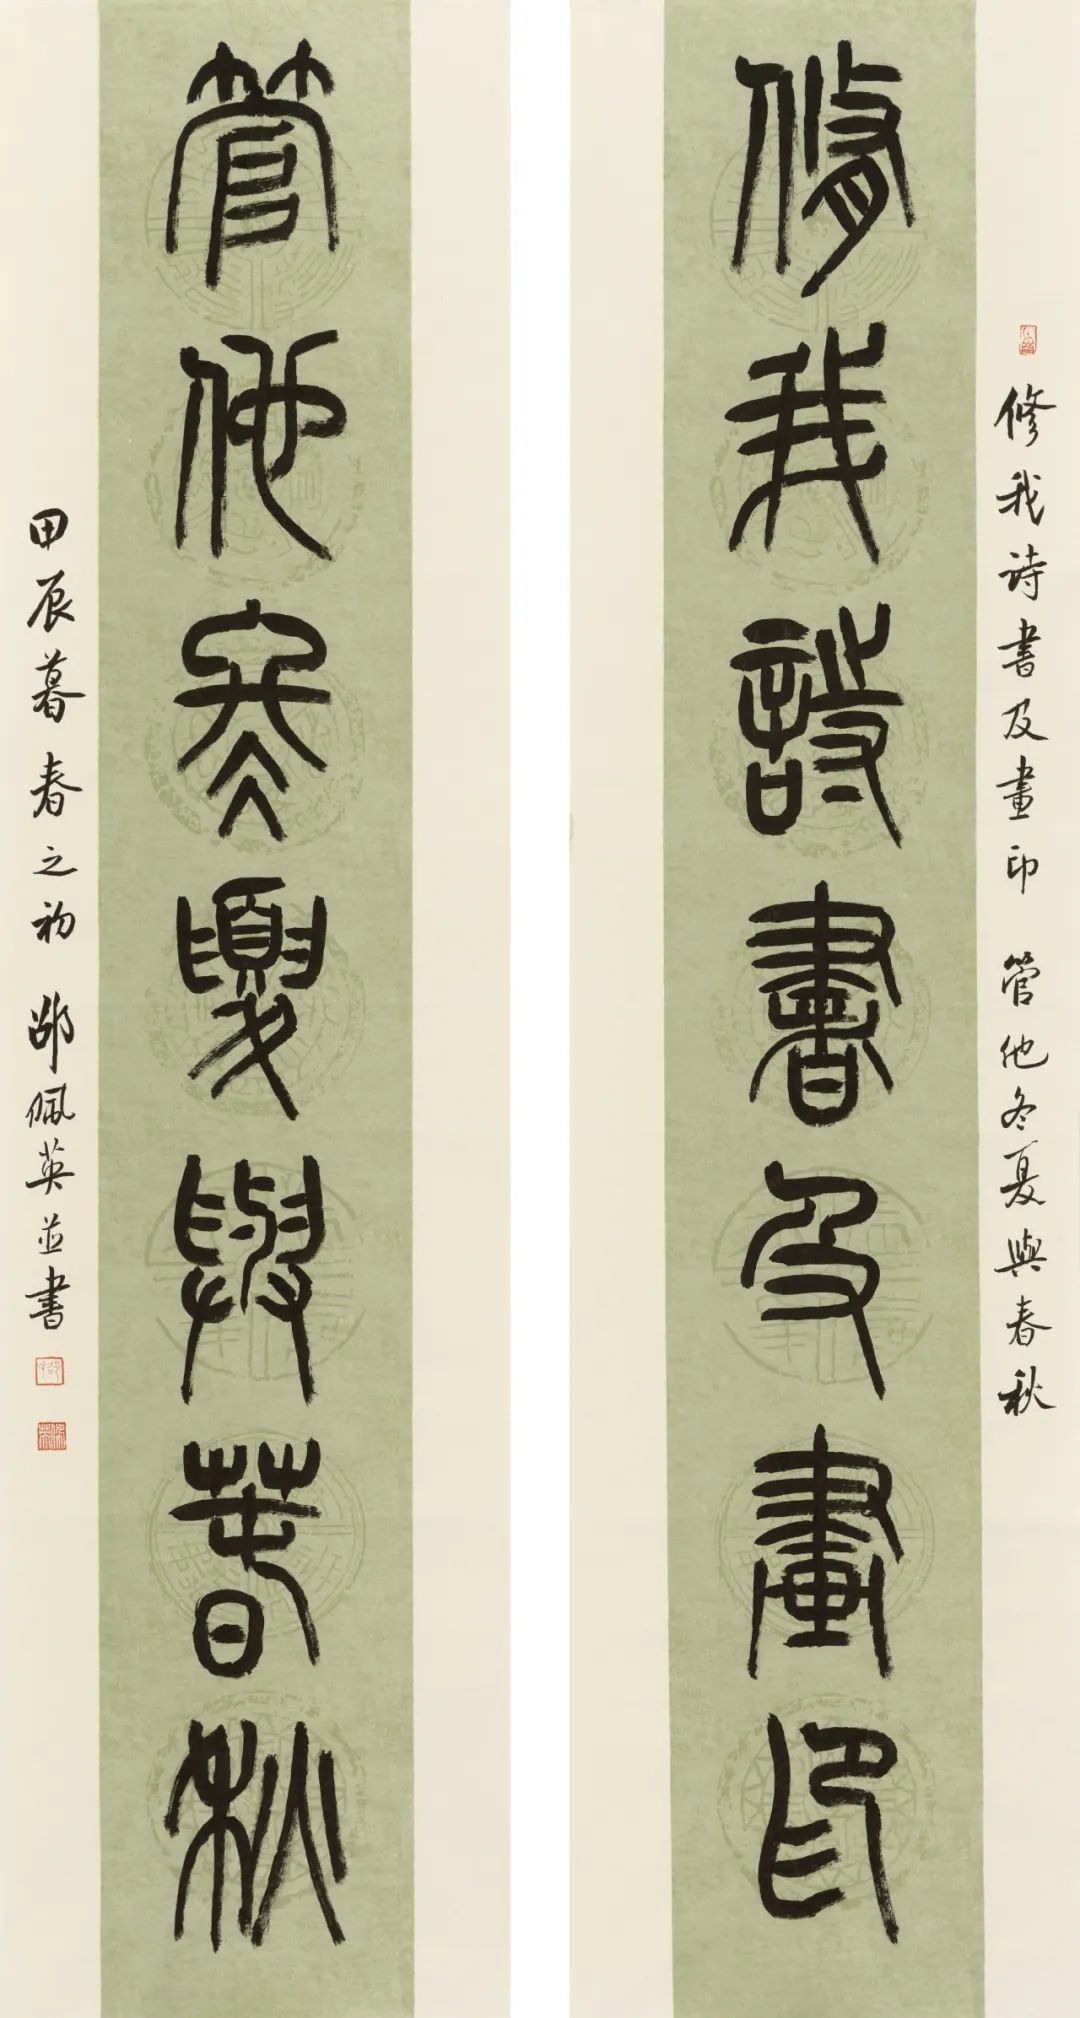 修我詩書及畫印
修我詩書及畫印 管他冬夏與春秋
管他冬夏與春秋
甲辰暮春之初 邵佩英並書